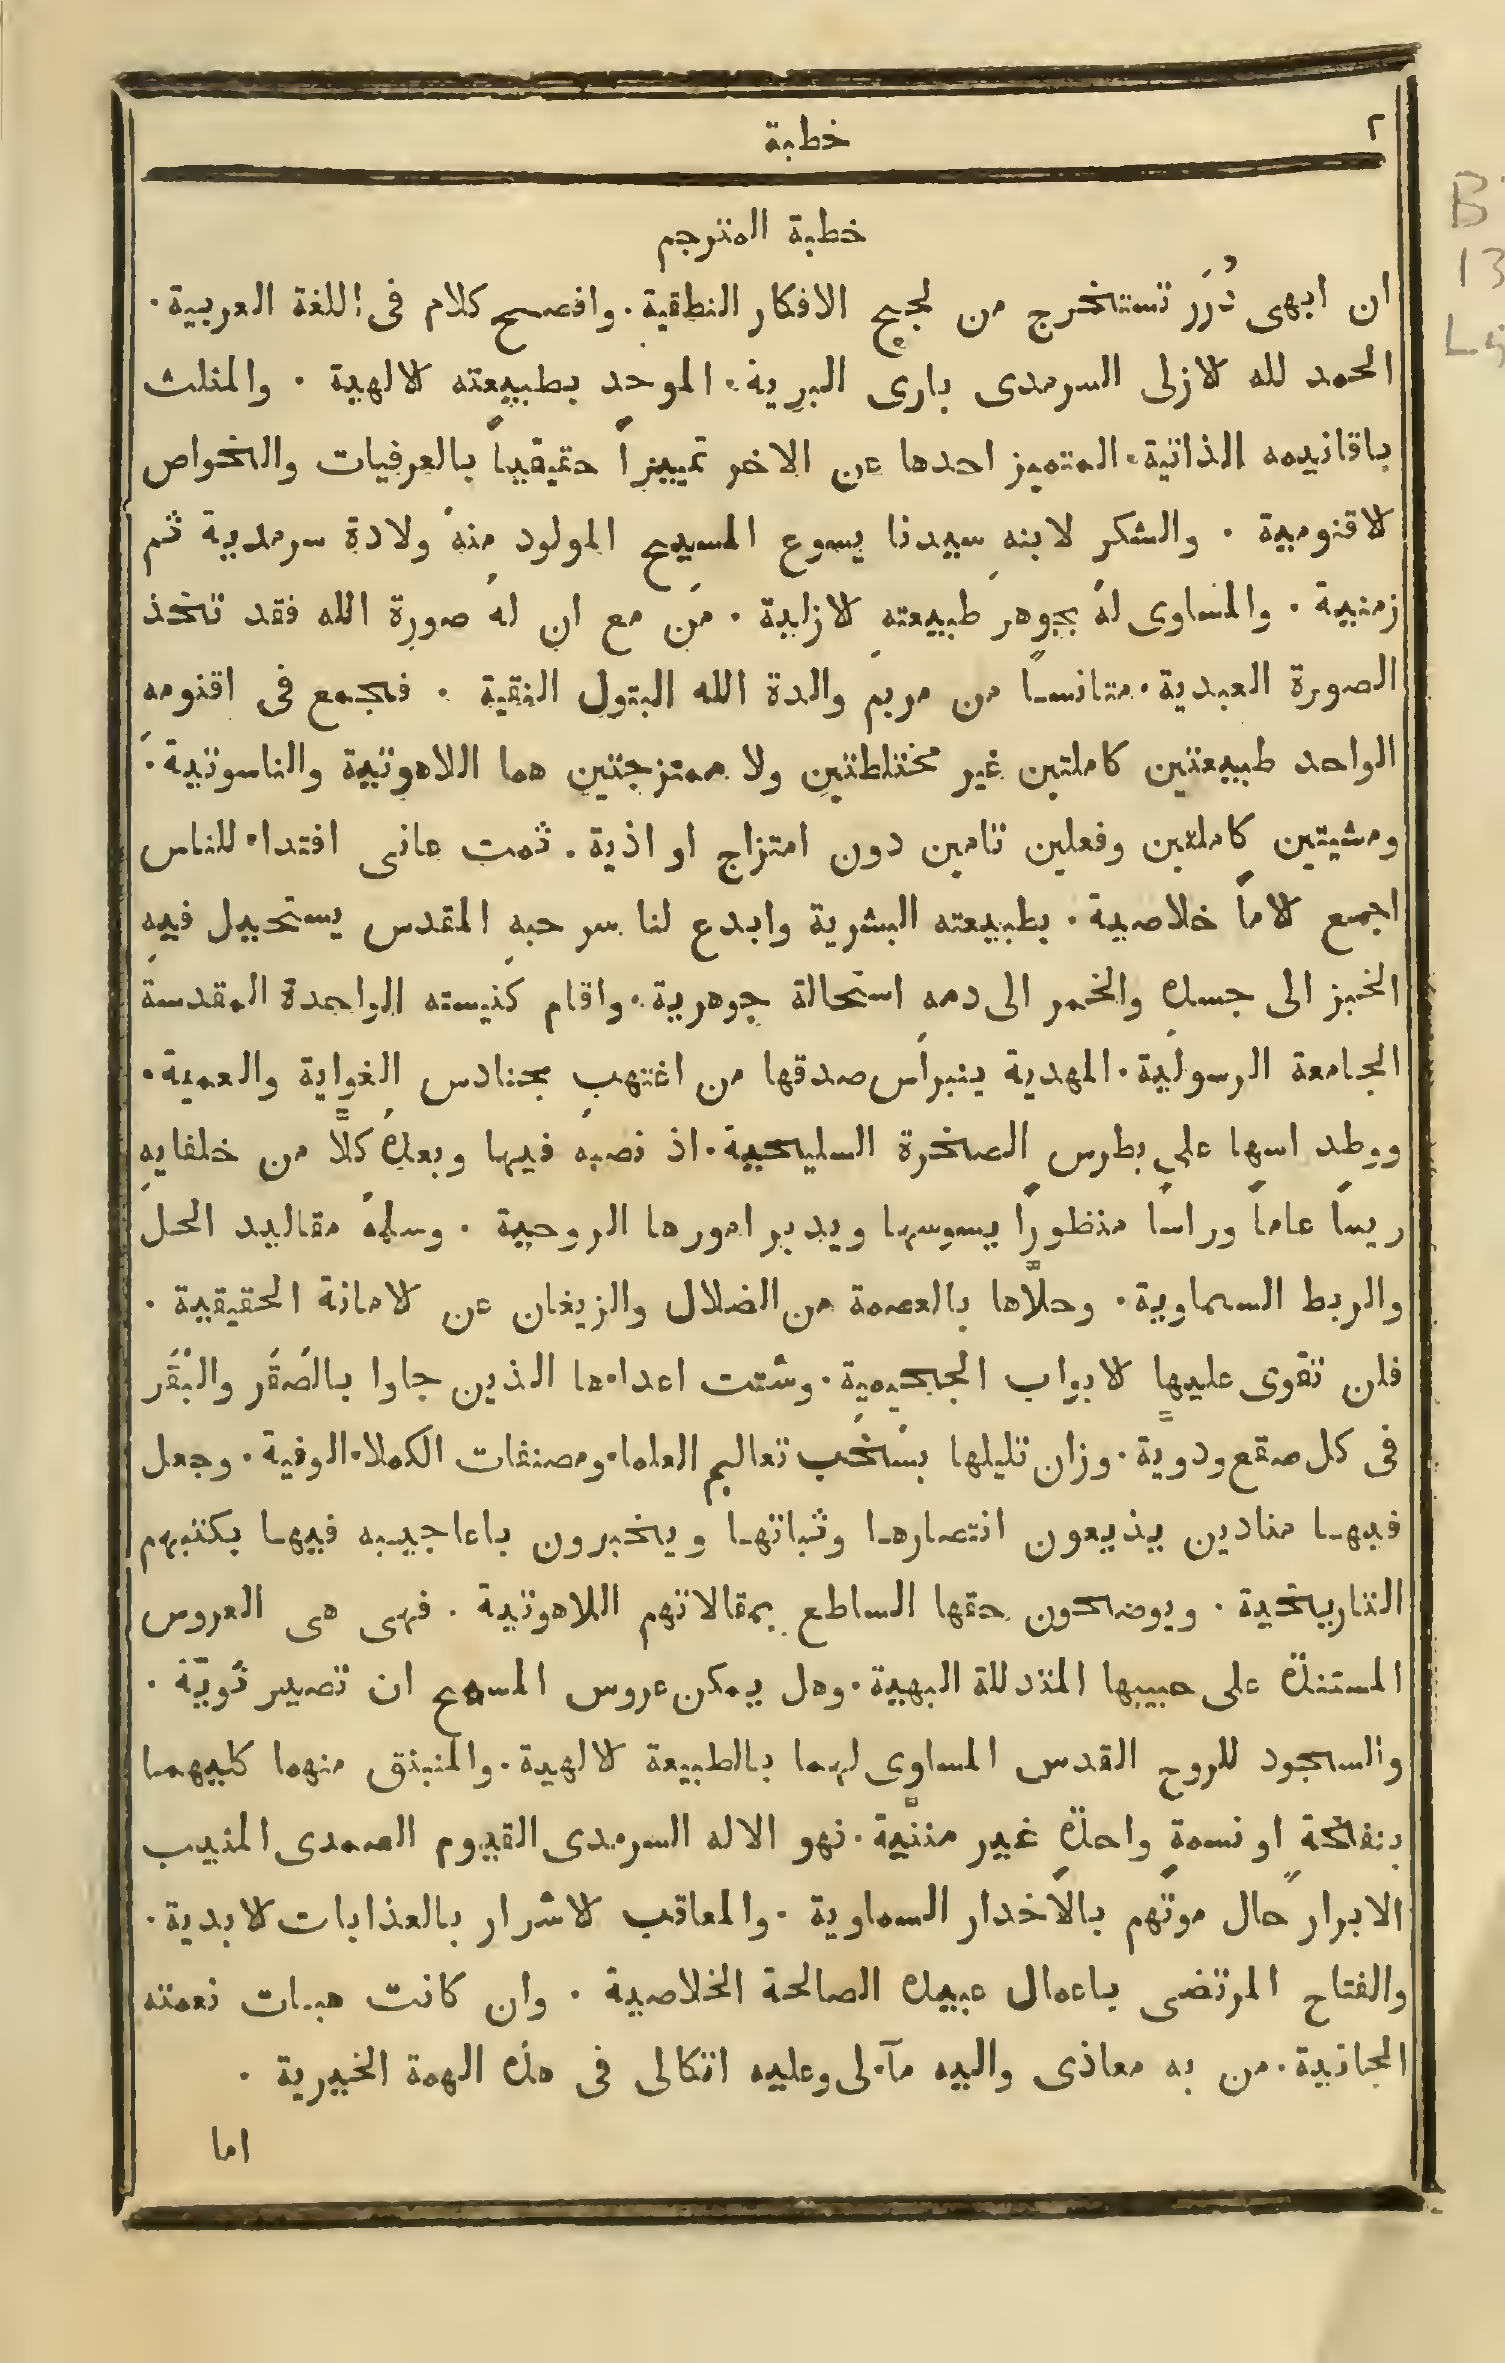 ٢
خطبة
خطبة المترجم
ان ابهى دُرَرٍ تستخرج من لجج الافكار النطقية. وافصح كلام فى اللغة العربية.
الحمد لله لازلى السرمدى بارى البرية. الموحد بطبيعته لالهية . والمثلث
باقانيمه الذاتية. المتميز احدها عن الاخر تمييزاً حقيقياً بالعرفيات والخواص
لاقنومية . والشكر لابنه سيدنا يسوع المسيح المولود منهُ ولادة سرمدية ثم
زمنية . والمساوى لهُ بجوهر طبيعتهِ لازلية . مَن مع ان لهُ صورة الله فقد تخذ
الصورة العبدية. متانساً من مريم والدة الله البتول النقية . فجمع فى اقنومه
الواحد طبيعتين كاملتين غير مختلطتين ولا ممتزجتين هما اللاهوتية والناسوتية.
ومشيتين كاملتين وفعلين تامين دون امتزاج او اذية . ثمت عانى افتداء للناس
اجمع لاماً خلاصية. بطبيعته البشرية وابدع لنا سر حبهِ المقدس يستحيل فيهِ
الخبز الى جسدهِ والخمر الى دمه استحالة جوهرية. واقام كنيسته الواحدة المقدسة
الجامعة الرسولية. المهدية بنبراس صدقها من اغتهب بحنادس الغواية والعمية.
ووطد اسها على بطرس الصخرة السليحية. اذ نصبه فيها وبعدهُ كلاًّ من خلفايهِ
ريساً عاماً وراساً منظوراً يسوسها ويدبر امورها الروحية . وسلمهُ مقاليد الحل
والربط السماوية. وحلاّها بالعصمة من الضلال والزيغان عن لامانة الحقيقية .
فلن تقوى عليها لابواب الجحيمية. وشتت اعداءها الذين جاوا بالصُقَر والبُقَر
فى كل صقع ودوية. وزان تليلها بسُخُب تعاليم العلماء ومصنفات الكملاء الوفية. وجعل
فيها منادين يذيعون انتصارها وثباتها ويخبرون باعاجيبه فيها بكتبهم
التاريخية . ويوضحون حقها الساطع بمقالاتهم اللاهوتية . فهى هى العروس
المستندة على حبيبها المتدللة البهية. وهل يمكن عروس المسيح ان تصير ثويّة .
والسجود للروح القدس المساوى لهما بالطبيعة لالهية. والمنبثق منهما كليهما
بنفخة او نسمةٍ واحدةٍ غير مثنّية. فهو الاله السرمدى القيوم الصمدى المثيب
الابرار حال موتهم بالاخدار السماوية . والمعاقب لاشرار بالعذابات لابدية.
والفتاح المرتضى باعمال عبيده الصالحة الخلاصية . وان كانت هبات نعمته
المجانية. من به معاذى واليه مآلى وعليه اتكالى فى هذه الهمة الخيرية .
اما